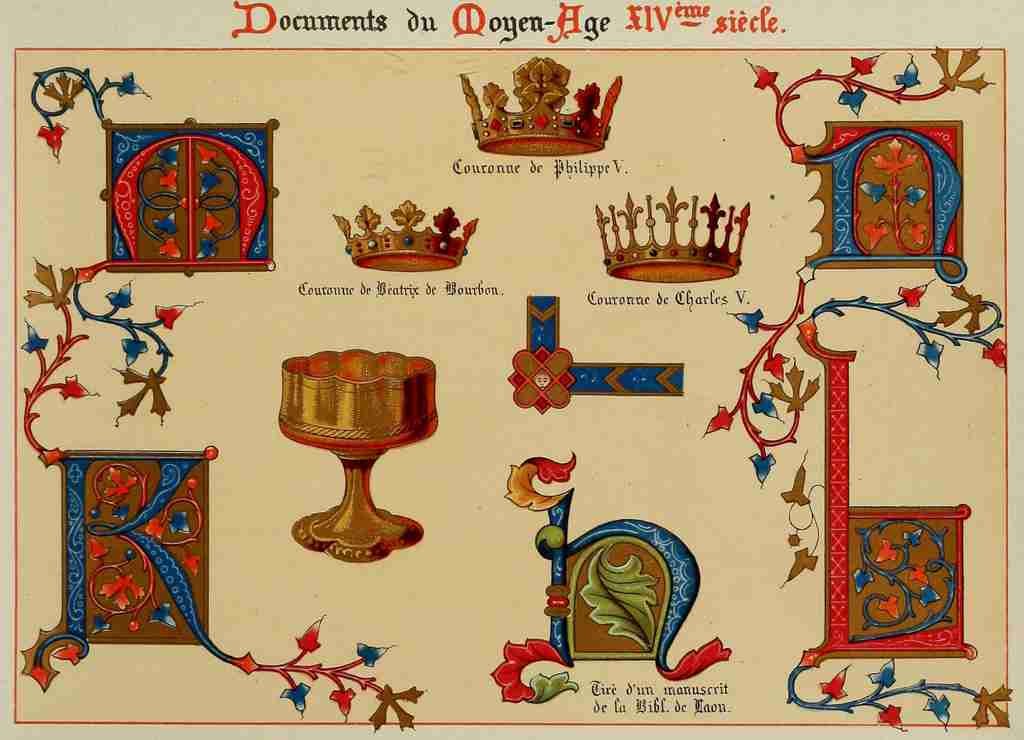 Documents du Moyen-Age XIVème siècle.
Couronne de Philippe V.
Couronne de Béatrix de Bourbon.
Couronne de Charles V.
M
n
K
h
L
Tiré d'un manuscrit
de la Bibl. de Laon.